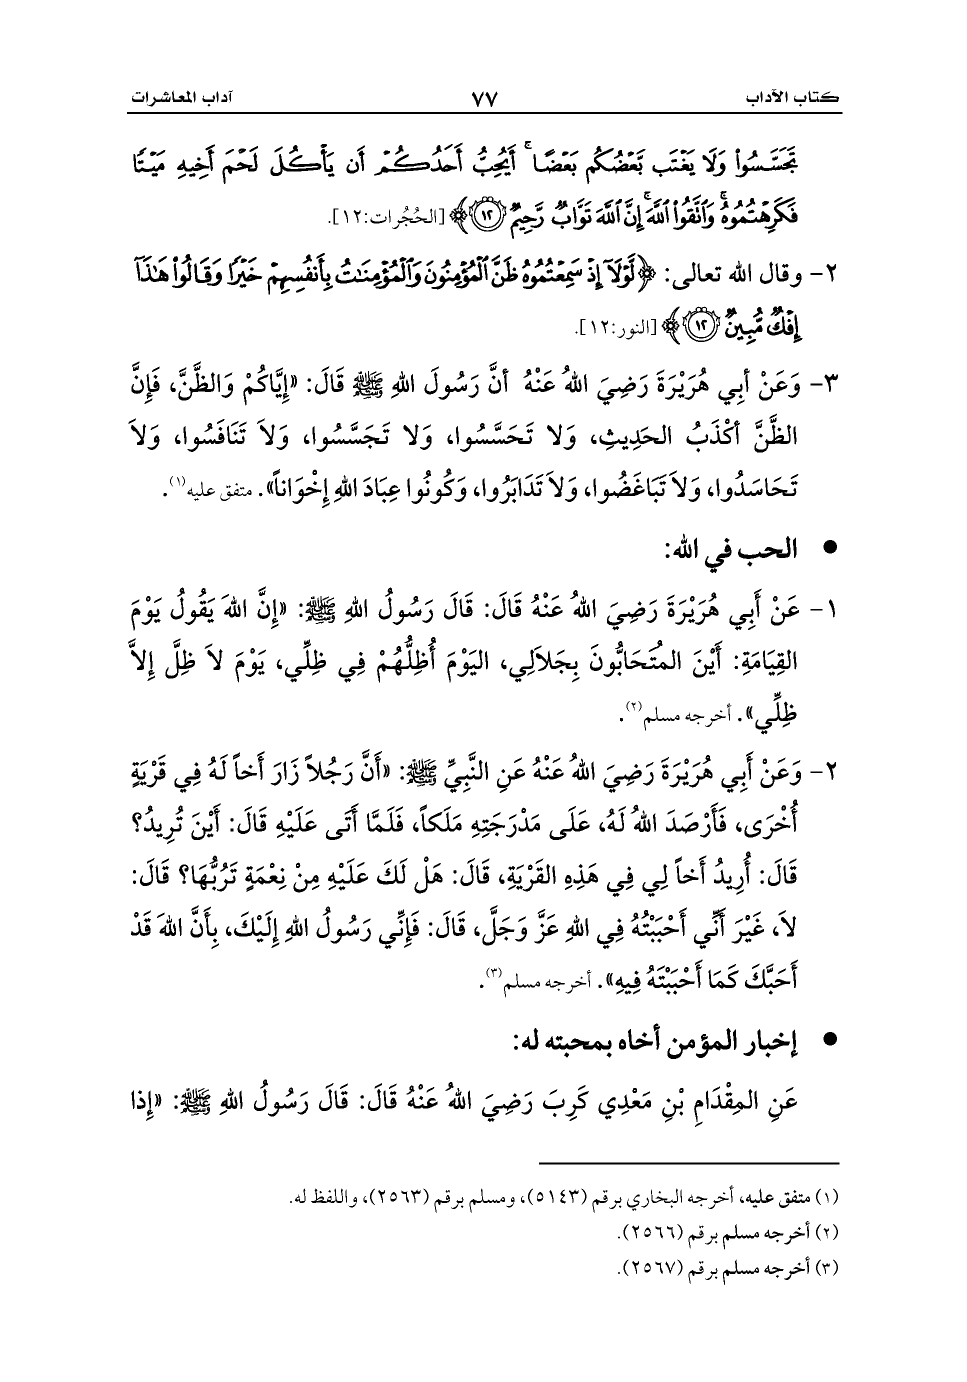 كتاب الآداب ٧٧ آداب المعاشرات
تَجَسَّسُوا۟ وَلَا يَغْتَب بَّعْضُكُم بَعْضًا ۚ أَيُحِبُّ أَحَدُكُمْ أَن يَأْكُلَ لَحْمَ أَخِيهِ مَيْتًا
فَكَرِهْتُمُوهُ ۚ وَٱتَّقُوا۟ ٱللَّهَ ۚ إِنَّ ٱللَّهَ تَوَّابٌ رَّحِيمٌ ﴿١٢﴾ [الحُجُرات:١٢].
٢- وقال الله تعالى: ﴿لَّوْلَآ إِذْ سَمِعْتُمُوهُ ظَنَّ ٱلْمُؤْمِنُونَ وَٱلْمُؤْمِنَـٰتُ بِأَنفُسِهِمْ خَيْرًا وَقَالُوا۟ هَـٰذَآ
إِفْكٌ مُّبِينٌ ﴿١٢﴾ [النور:١٢].
٣- وَعَنْ أبِي هُرَيْرَةَ رَضِيَ اللهُ عَنْهُ أنَّ رَسُولَ اللهِ ﷺ قَالَ: «إِيَّاكُمْ وَالظَّنَّ، فَإِنَّ
الظَّنَّ أكْذَبُ الحَدِيثِ، وَلا تَحَسَّسُوا، وَلا تَجَسَّسُوا، وَلاَ تَنَافَسُوا، وَلاَ
تَحَاسَدُوا، وَلاَ تَبَاغَضُوا، وَلاَ تَدَابَرُوا، وَكُونُوا عِبَادَ اللهِ إِخْوَاناً». متفق عليه(١).
● الحب في الله:
١- عَنْ أَبِي هُرَيْرَةَ رَضِيَ اللهُ عَنْهُ قَالَ: قَالَ رَسُولُ اللهِ ﷺ: «إِنَّ اللهَ يَقُولُ يَوْمَ
القِيَامَةِ: أَيْنَ المُتَحَابُّونَ بِجَلاَلِي، اليَوْمَ أُظِلُّهُمْ فِي ظِلِّي، يَوْمَ لاَ ظِلَّ إِلاَّ
ظِلِّي». أخرجه مسلم(٢).
٢- وَعَنْ أَبِي هُرَيْرَةَ رَضِيَ اللهُ عَنْهُ عَنِ النَّبِيِّ ﷺ: «أَنَّ رَجُلاً زَارَ أَخاً لَهُ فِي قَرْيَةٍ
أُخْرَى، فَأَرْصَدَ اللهُ لَهُ، عَلَى مَدْرَجَتِهِ مَلَكاً، فَلَمَّا أَتَى عَلَيْهِ قَالَ: أَيْنَ تُرِيدُ؟
قَالَ: أُرِيدُ أَخاً لِي فِي هَذِهِ القَرْيَةِ، قَالَ: هَلْ لَكَ عَلَيْهِ مِنْ نِعْمَةٍ تَرُبُّهَا؟ قَالَ:
لاَ، غَيْرَ أَنِّي أَحْبَبْتُهُ فِي اللهِ عَزَّ وَجَلَّ، قَالَ: فَإِنِّي رَسُولُ اللهِ إِلَيْكَ، بِأَنَّ اللهَ قَدْ
أَحَبَّكَ كَمَا أَحْبَبْتَهُ فِيهِ». أخرجه مسلم(٣).
● إخبار المؤمن أخاه بمحبته له:
عَنِ المِقْدَامِ بْنِ مَعْدِي كَرِبَ رَضِيَ اللهُ عَنْهُ قَالَ: قَالَ رَسُولُ اللهِ ﷺ: «إِذا
(١) متفق عليه، أخرجه البخاري برقم (٥١٤٣)، ومسلم برقم (٢٥٦٣)، واللفظ له.
(٢) أخرجه مسلم برقم (٢٥٦٦).
(٣) أخرجه مسلم برقم (٢٥٦٧).